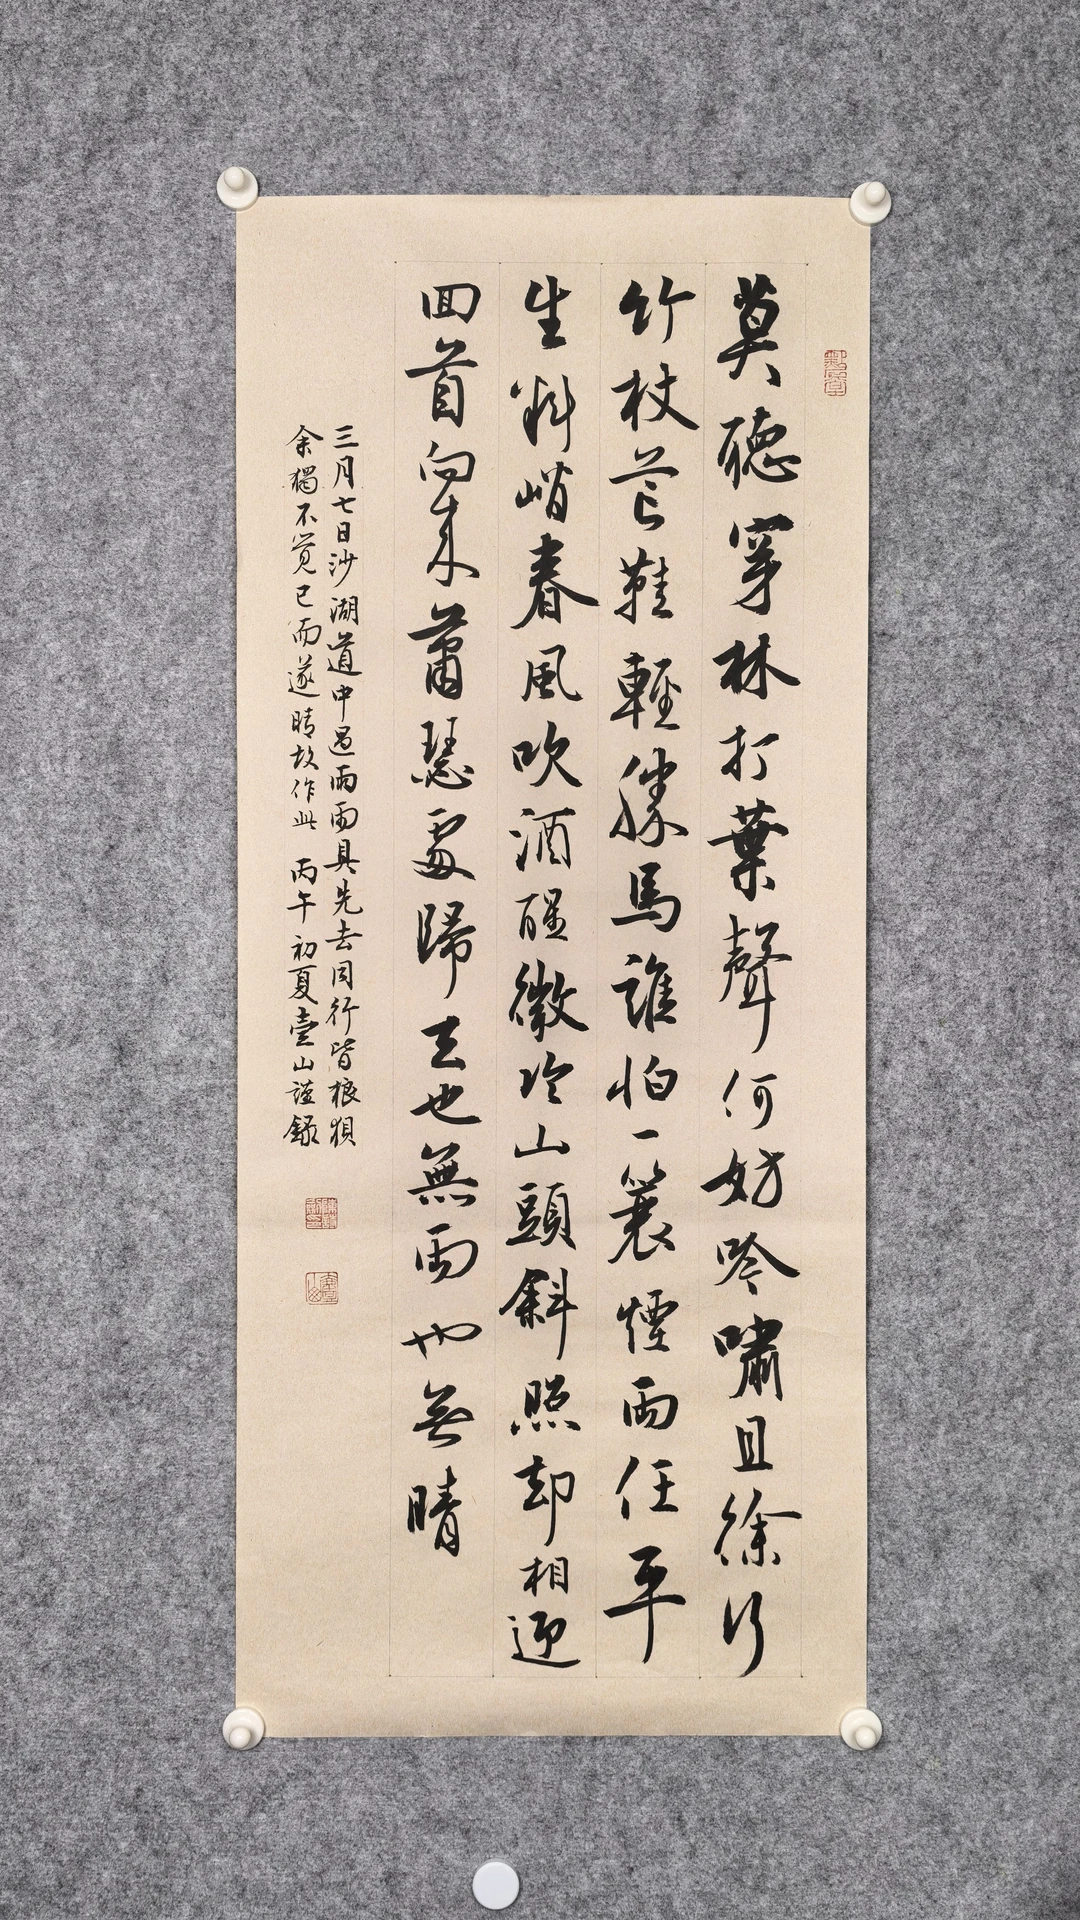 莫聽穿林打葉聲何妨吟嘯且徐行
竹杖芒鞋輕勝馬誰怕一蓑煙雨任平
生料峭春風吹酒醒微冷山頭斜照却相迎
回首向來蕭瑟處歸去也無雨也無晴
三月七日沙湖道中遇雨雨具先去同行皆狼狽
余獨不覚已而遂晴故作此 丙午初夏壹山謹錄